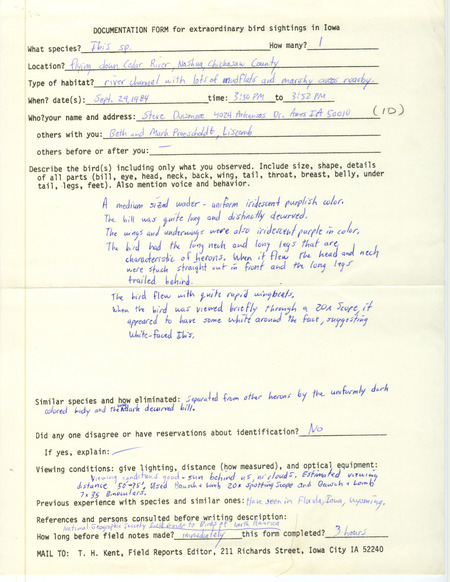 DOCUMENTATION FORM for extraordinary bird sightings in Iowa
What species? Ibis sp. How many? 1
Location? flying down Cedar River, Nashua, Chickasaw County
Type of habitat? river channel with lots of mudflats and marshy areas nearby.
When? date(s): Sept. 29, 1984 time: 3:50 PM to 3:52 PM
Who?your name and address: Steve Dinsmore 4024 Arkansas Dr. Ames IA 50010 (ID)
others with you: Beth and Mark Proescholdt, Liscomb
others before or after you: —
Describe the bird(s) including only what you observed. Include size, shape, details
of all parts (bill, eye, head, neck, back, wing, tail, throat, breast, belly, under
tail, legs, feet). Also mention voice and behavior.
A medium sized wader - uniform iridescent purplish color.
The bill was quite long and distinctly decurved.
The wings and underwings were also iridescent purple in color.
The bird had the long neck and long legs that are
characteristic of herons. When it flew the head and neck
were stuck straight out in front and the long legs
trailed behind.
The bird flew with quite rapid wingbeats.
When the bird was viewed briefly through a 20x scope, it
appeared to have some white around the face, suggesting
White-faced Ibis.
Similar species and how eliminated: Separated from other herons by the uniformly dark
colored body and the dark decurved bill.
Did any one disagree or have reservations about identification? No
If yes, explain: —
Viewing conditions: give lighting, distance (how measured), and optical equipment:
Viewing conditions good - sun behind us, no clouds. Estimated viewing
distance 50-75 Used Bausch + Lomb 20x spotting scope and Bausch + Lomb
7x35 Binoculars.
Previous experience with species and similar ones: Have seen in Florida, Iowa, Wyoming.
References and persons consulted before writing description:
National Geographic Society Field Guide to Birds of North America
How long before field notes made? immediately this form completed? 3 hours
MAIL TO: T. H. Kent, Field Reports Editor, 211 Richards Street, Iowa City IA 52240